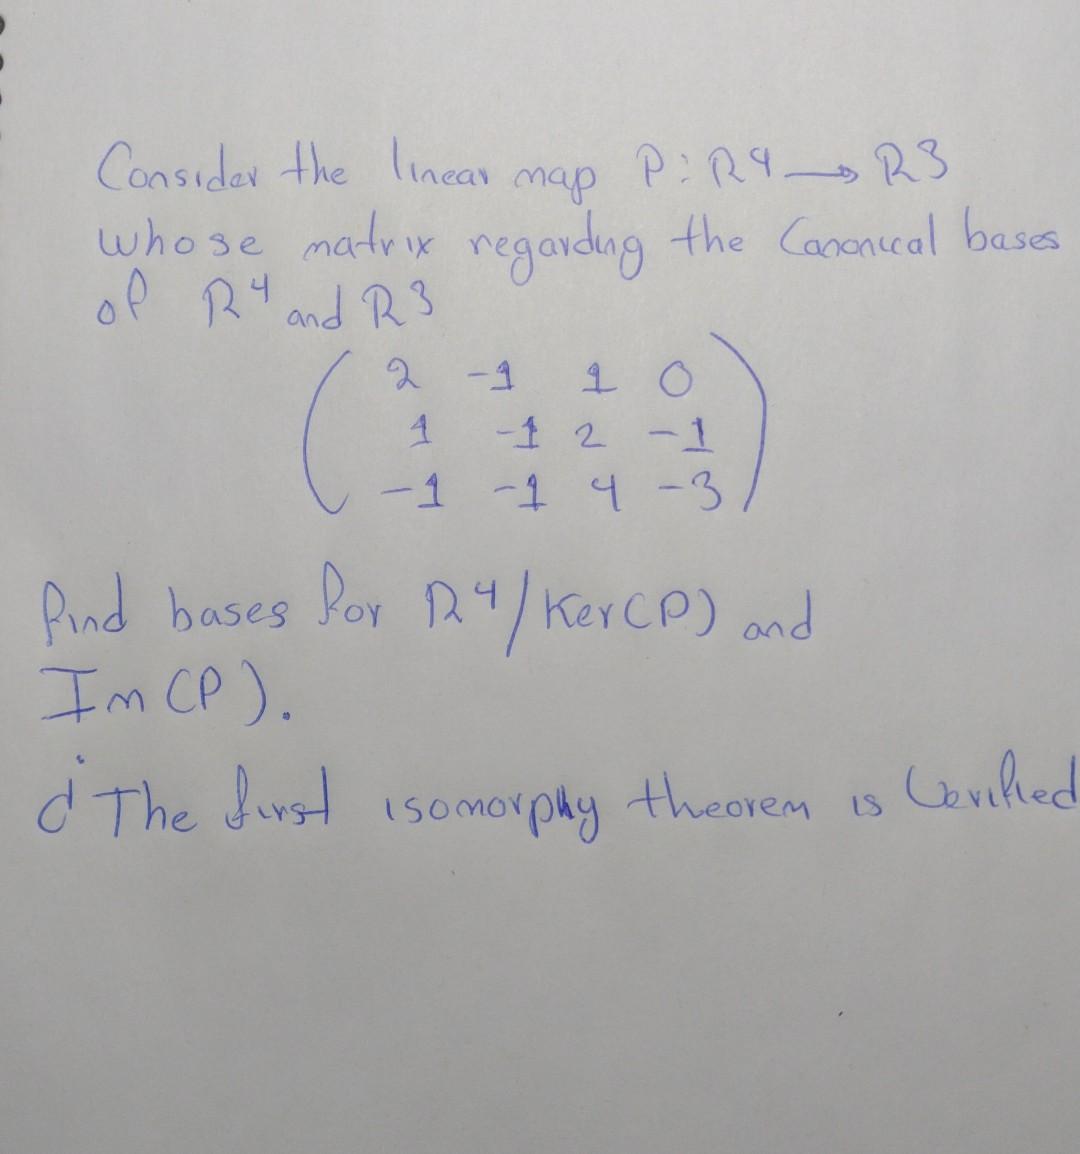 Consider the linear map P: R4 → R3
whose matrix regarding the Canonical bases
of R4 and R3
2 -1 1 0
1 -1 2 -1
-1 -1 4 -3
find bases for R4/Ker(P) and
Im (P).
¿ The first isomorphy theorem is Verified